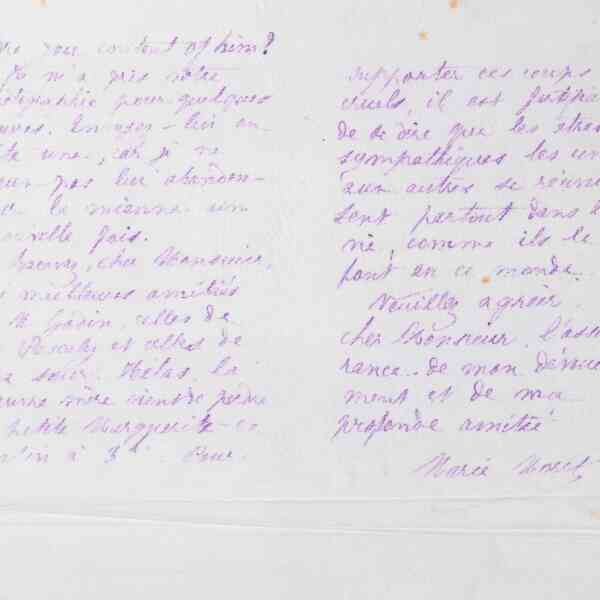 you content of him?
m'a pris votre
photographie pour quelques
heures. Envoyez-lui en
une, car je ne
pas lui abandon-
la mienne une
nouvelle fois.
Recevez, cher Monsieur,
meilleures amitiés
M. Godin, celles de
et celles de
sœur. Hélas, la
mère vient de perdre
petite Marguerite
à 3 Pour
supporter ces coups
cruels, il est
de se dire que les
sympathiques les un
aux autres se réunis
sent partout dans l
vie, comme ils le
font en ce monde.
Veuillez agréer,
cher Monsieur, l'assu
rance de mon dévoue
ment et de ma
profonde amitié
Marie Moret